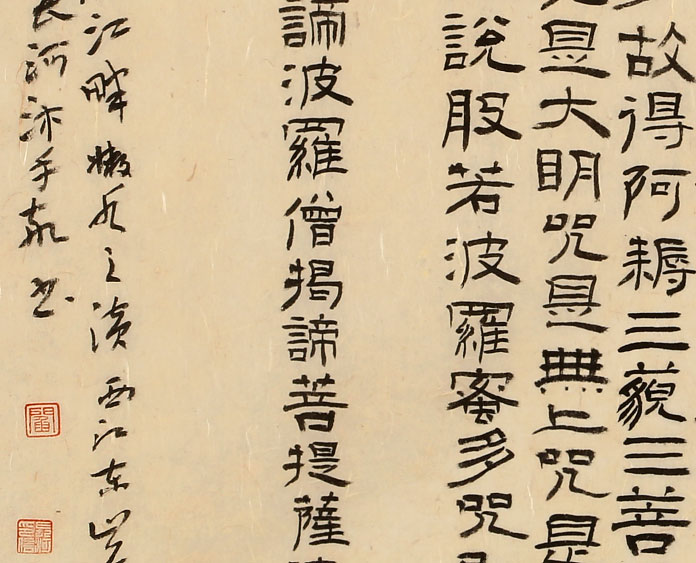 故得阿耨三藐三菩
是大明咒是無上咒是
說般若波羅蜜多咒
諦波羅僧揭諦菩提薩
江畔 之濱西江東
長河沐手敬書